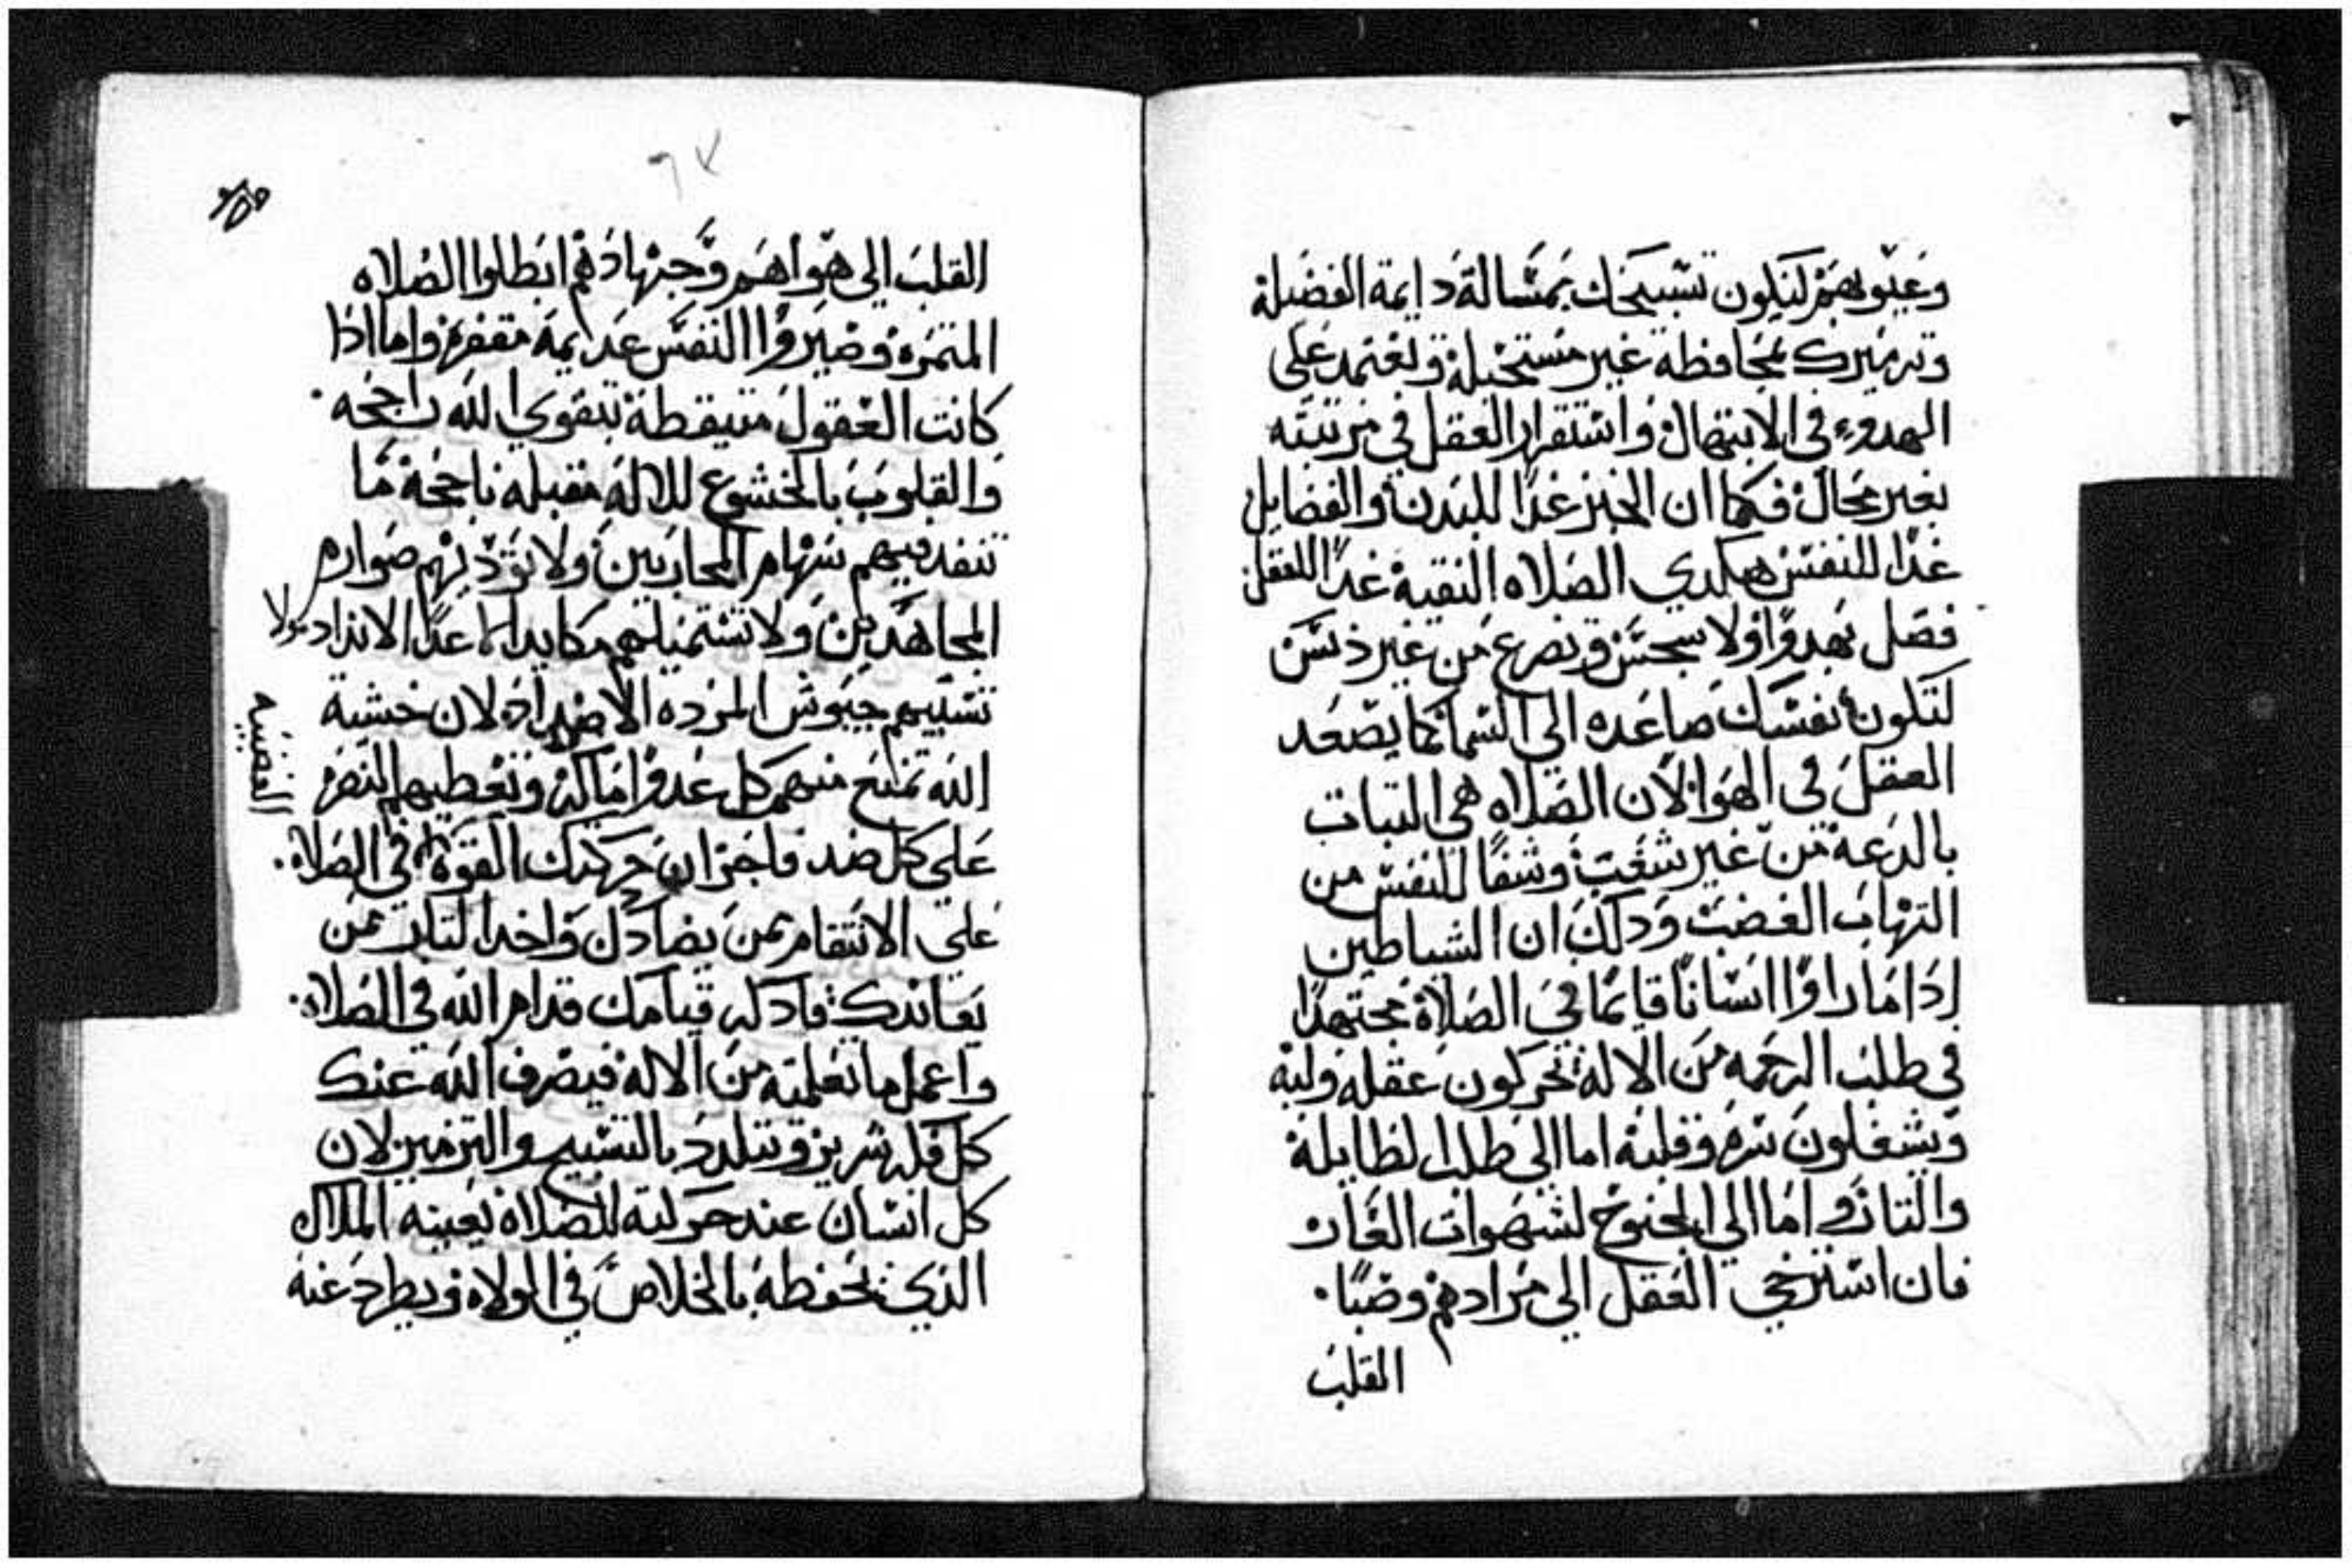 وعيوبهم ليكون تسبيحك بمسالة دايمة الفضيلة
وترميرك بمحافظة غير مستحيلة وتعتمد على
الهدوء في الابتهال واستقرار العقل في مرتبته
بغير محال فكما ان الخبز غدا للبدن والفضايل
غدا للنفس هكدي الصلاه النقية غدا للعقل
فصل بهدوا ولا سجس وتضرع من غير دنس
لتكون نفسك صاعده الى السما كما يصعد
العقل في الهوا لان الصلاه هي التبات
بالدعة من غير شغب وشفا للنفس من
التهاب الغضب ودلك ان الشياطين
ادا ما راوا انسانا قايما في الصلاة مجتهدا
في طلب الرحمه من الاله يحركون عقله ولبه
ويشغلون سره وقلبه اما الى طلب الطايلة
والتار واما الي الجنوح لشهوات العار
فان استرخي العقل الي مرادهم وصبا
القلب
القلب الي هواهم وجهادهم ابطلوا الصلاه
المتمره وصيروا النفس عدايمة مقفره واما ادا
كانت العقول متيقظة بتقوي الله راجحه
والقلوب بالخشوع للاله مقبله ناجحة ما
تنفد فيهم سهام المحاربين ولا تؤديهم صوارم
المجاهدين ولا تستميلهم مكايد الاعدا الانداد ولا
تسبيهم جيوش المرده الاضداد لان خشية
الله تمنع منهم كل عدو ماكر وتعطيهم النصر
علي كل ضد فاجر ان حركتك القوة في الصلاة
الغضبيه
علي الانتقام ممن يضادك واخد التار ممن
يعاندك فادكر قيامك قدام الله في الصلاة
واعمل ما تعلمته من الاله فيصرف الله عنك
كل فكر شرير وتتلدد بالتسبيح والترمير لان
كل انسان عند حركته للصلاة يعينه الملاك
الذي يحفظه بالخلاص في الولاة ويطرد عنه